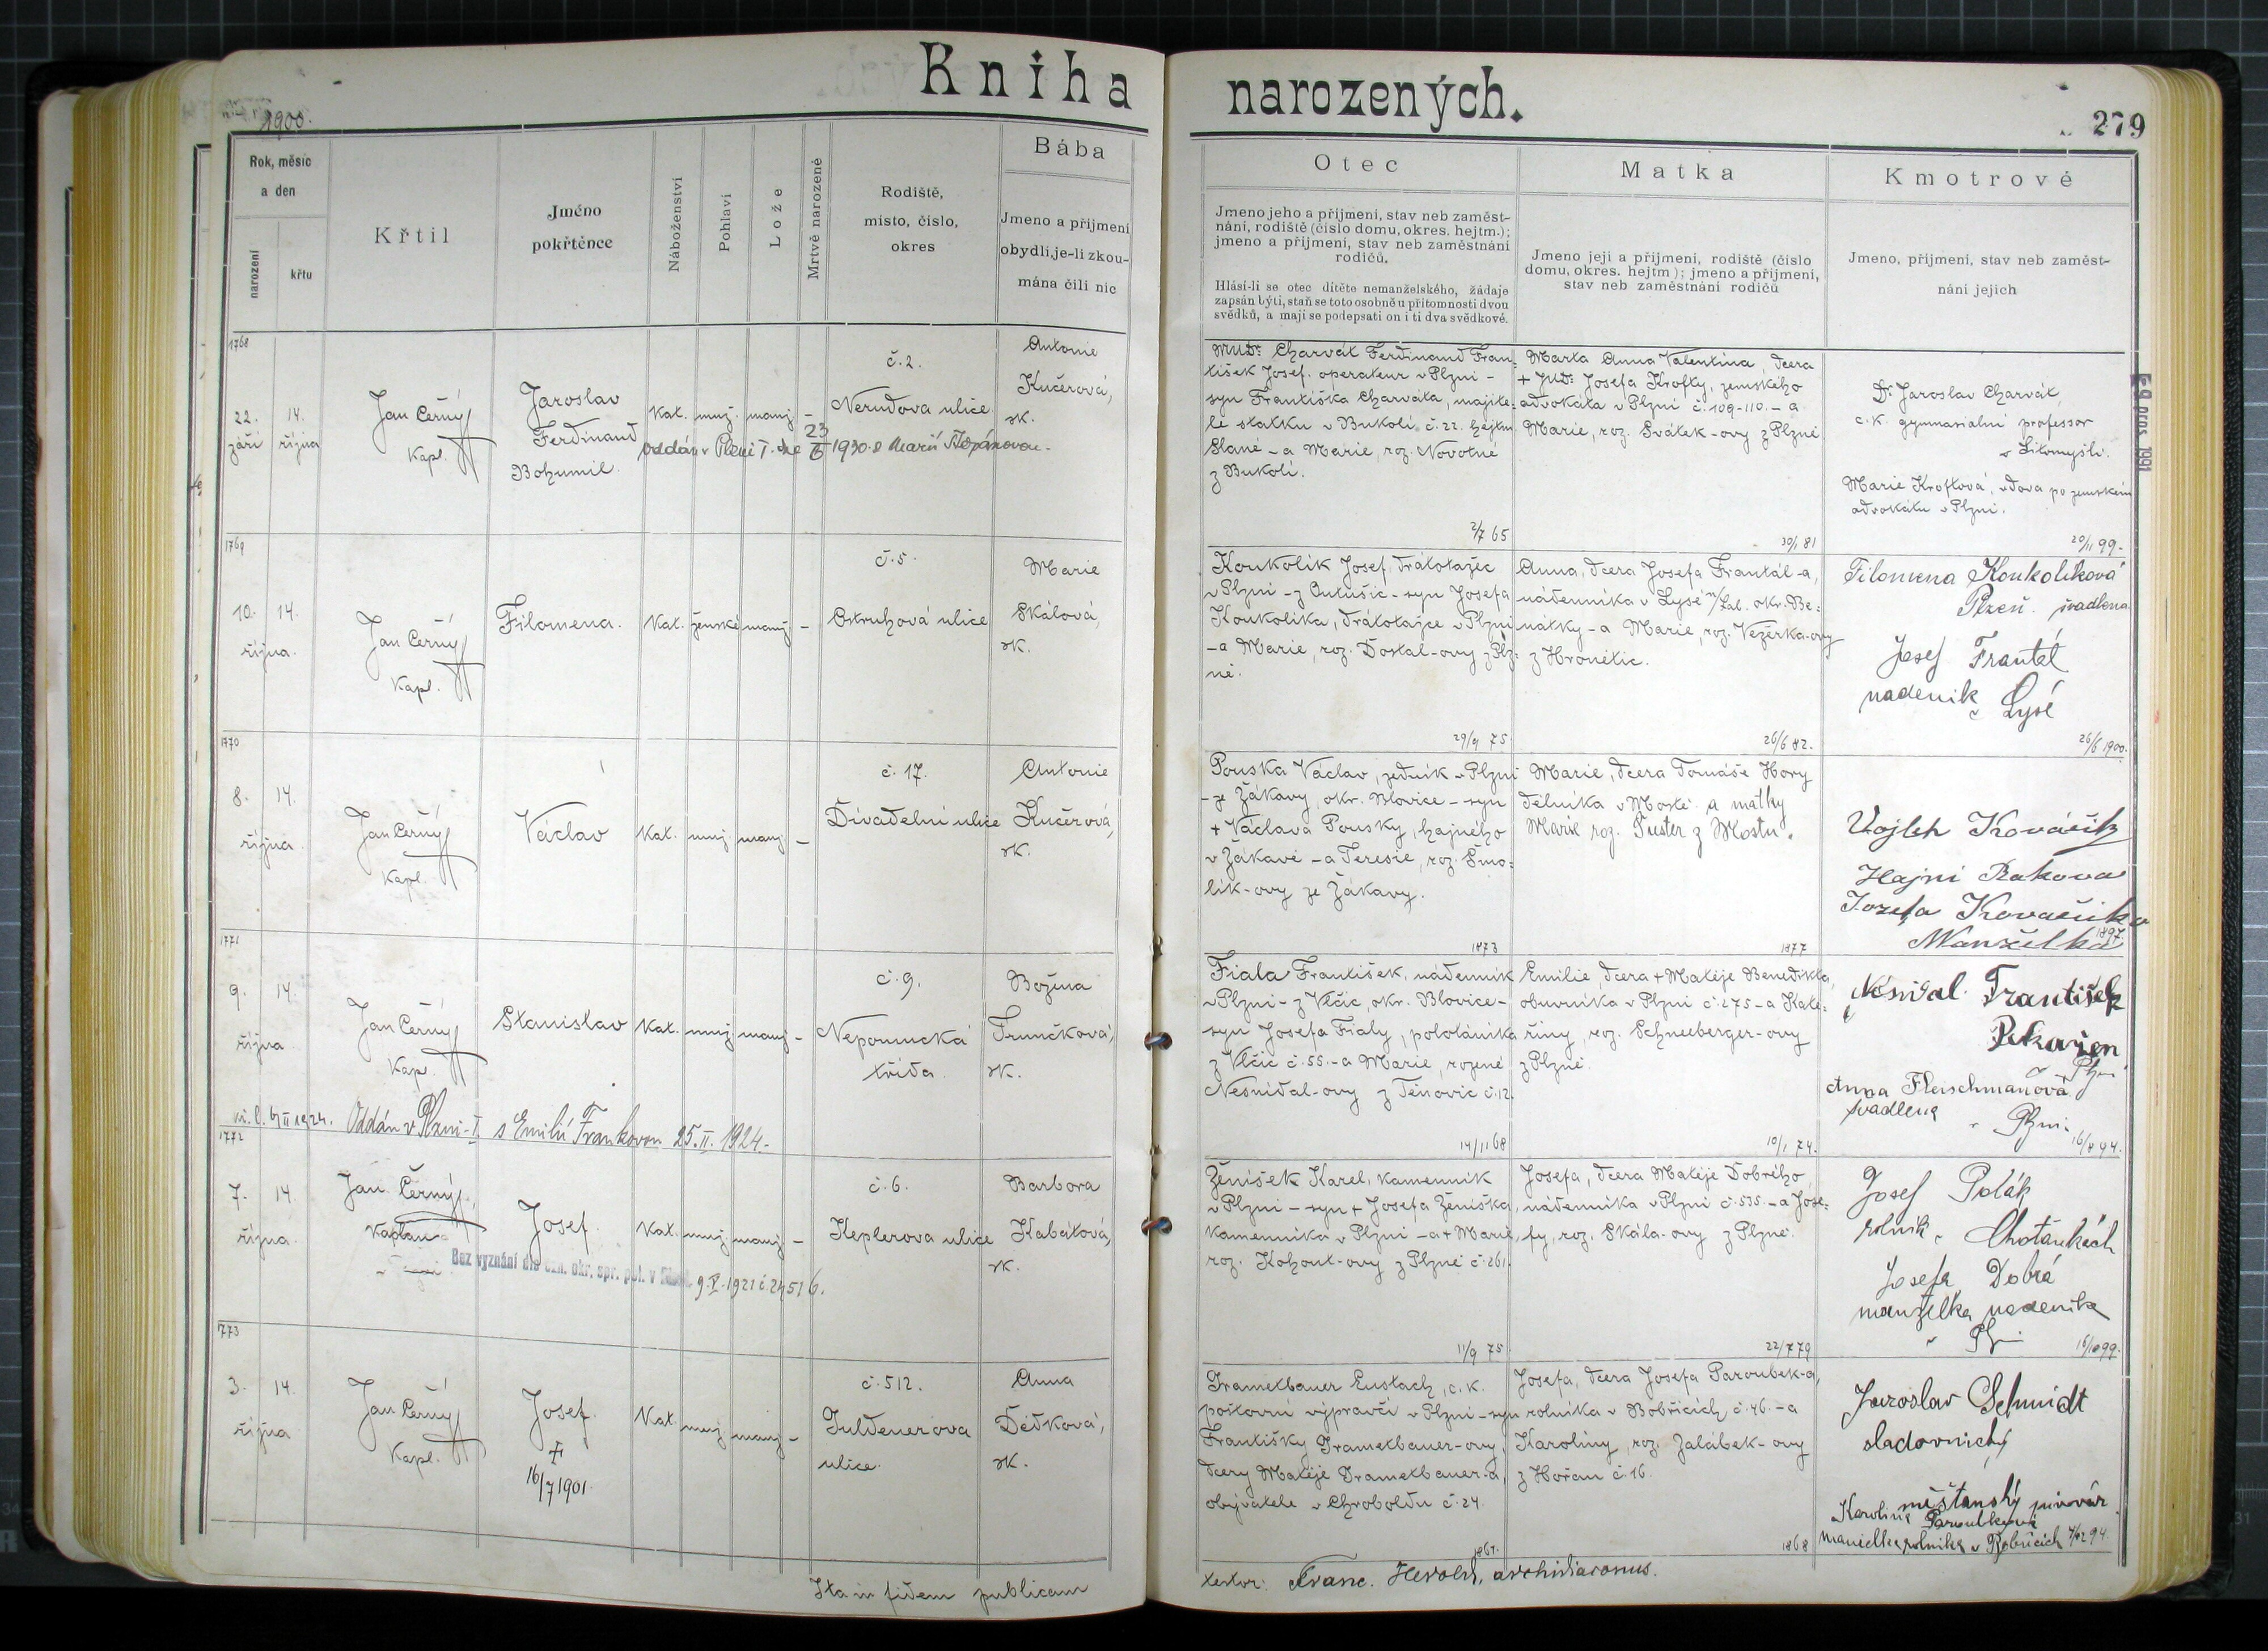 Kniha narozených.
1900.
279
Rok, měsíc
a den
narození
křtu
Křtil
Jméno
pokřtěnce
Náboženství
Pohlaví
Lože
Mrtvě narozené
Rodiště,
místo, číslo,
okres
Bába
Jmeno a přijmení
obydlí, je-li zkou-
mána čili nic
Otec
Jmeno jeho a přijmení, stav neb zaměst-
nání, rodiště (číslo domu, okres. hejtm.);
jmeno a přijmení, stav neb zaměstnání
rodičů.
Hlásí-li se otec dítěte nemanželského, žádaje
zapsán býti, staň se toto osobně u přítomnosti dvou
svědků, a mají se podepsati on i ti dva svědkové.
Matka
Jmeno její a přijmení, rodiště (číslo
domu, okres. hejtm); jmeno a přijmení,
stav neb zaměstnání rodičů
Kmotrové
Jmeno, přijmení, stav neb zaměst-
nání jejich
1768
22.
září
14.
října
Jan Černý
Kapl.
Jaroslav
Ferdinand
Bohumil.
Kat. muž. manž. –
č. 2.
Nerudova ulice
Antonie
Kučerová,
zk.
Oddán v Plzni I. dne 23/6 1930 s Marií Štěpánovou.
MUDr. Charvát Ferdinand Fran-
tišek Josef, operateur v Plzni –
syn Františka Charváta, majite-
le statku v Bukoli č. 22. hejtm.
Slané – a Marie, roz. Novotné
z Bukoli.
2/7 65
Marta Anna Valentina, dcera
+ JUDr. Josefa Krofty, zemského
advokáta v Plzni č. 109-110. – a
Marie, roz. Svátek-ovy z Plzně.
30/1 81
Dr. Jaroslav Charvát,
c. k. gymnasialní professor
v Litomyšli.
Marie Kroftová, vdova po zemském
advokátu v Plzni.
20/11 99.
1769
10.
října.
14.
Jan Černý
Kapl.
Filomena.
Kat. ženské manž. –
č. 5.
Ostruhová ulice
Marie
Skálová,
zk.
Koukolík Josef, drátotažec
v Plzni – z Outušic – syn Josefa
Koukolíka, drátotažce v Plzni
– a Marie, roz. Dostal-ovy z Plz-
ně.
29/9 75
Anna, dcera Josefa Frantál-a,
nádenníka v Lysé n/Lab. okr. Be-
nátky – a Marie, roz. Vežerka-ovy
z Hronětic.
26/6 82.
Filomena Koukolíková
Plzeň. švadlena
Josef Frantál
nadenik v Lysé
26/6 1900.
1770
8.
října
14.
Jan Černý
Kapl.
Václav
Kat. muž. manž. –
č. 17.
Divadelní ulice
Antonie
Kučerová,
zk.
Pouska Václav, zedník v Plzni
– ze Žákavy, okr. Blovice – syn
+ Václava Pousky, hajného
v Žákavě – a Teresie, roz. Smo-
lík-ovy ze Žákavy.
1873
Marie, dcera Tomáše Hory
dělníka v Mostě a matky
Marie roz. Šuster z Mostu.
1877
Vojtěch Kovářik
Hajní Rakova
Jozefa Kovaříka
Manželka
1897.
1771
9.
října
14.
Jan Černý
Kapl.
Stanislav
Kat. muž. manž. –
č. 9.
Nepomucká
třída.
Božena
Frančková,
zk.
Oddán v Plzni-I. s Emilií Frankovou 25.II. 1924.
Fiala František, nádenník
v Plzni – z Vlčic, okr. Blovice –
syn Josefa Fialy, pololáníka
z Vlčic č. 55. – a Marie, rozené
Nesnídal-ovy z Těnovic č. 12.
14/11 68
Emilie, dcera + Matěje Benedikta,
obuvníka v Plzni č. 275 – a Kate-
řiny, roz. Schneeberger-ovy
z Plzně.
10/1 74.
Nesnídal František
Pekařen
v Plzni
Anna Fleischmanová
švadlena
v Plzni.
16/8 94.
1772
7.
října.
14.
Jan Černý
kaplan
Josef.
Kat. muž. manž. –
č. 6.
Keplerova ulice
Barbora
Kabátová,
zk.
Bez vyznání dle ozn. okr. spr. pol. v Plzni 9.V.1921 č. 24516.
Ženíšek Karel, kamenník
v Plzni – syn + Josefa Ženíška,
kamenníka v Plzni – a + Marie,
roz. Kohout-ovy z Plzně č. 261.
11/9 75.
Josefa, dcera Matěje Dobrého
nádenníka v Plzni č. 535. – a Jose-
fy, roz. Skála-ovy z Plzně.
22/7 79
Josef Polák
rolník v Chotánkách
Josefa Dobrá
manželka nadenika
v Plzni
16/10 99.
1773
3.
října
14.
Jan Černý
Kapl.
Josef.
‡
16/7 1901.
Kat. muž. manž. –
č. 512.
Guldenerova
ulice.
Anna
Dědková,
zk.
Grametbauer Eustach, c. k.
poštovní výpravčí v Plzni – syn
Františky Grametbauer-ovy,
dcery Matěje Grametbauer-a,
obyvatele v Chroboldu č. 24.
1867.
Josefa, dcera Josefa Paroubek-a,
rolníka v Bobřicích č. 46. – a
Karoliny, roz. Jalůbek-ovy
z Hořan č. 16.
1868
Jaroslav Schmidt
sladovnický
měšťanský pivovár
Karolina Paroubková
manželka rolníka v Bobřicích 4/12 94.
Ita in fidem publicam
testor: Franc. Herold, archidiaconus.